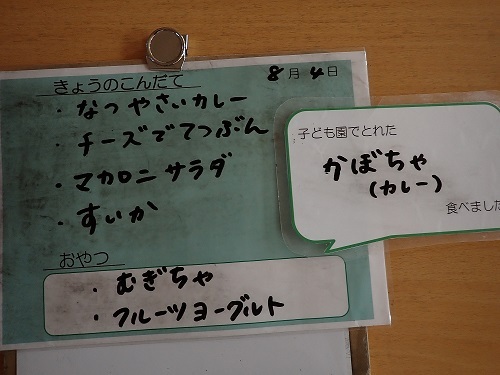 きょうのこんだて 8月4日
・なつやさいカレー
・チーズでてつぶん
・マカロニサラダ
・すいか
おやつ
・むぎちゃ
・フルーツヨーグルト
子ども園でとれた
かぼちゃ
(カレー)
食べました